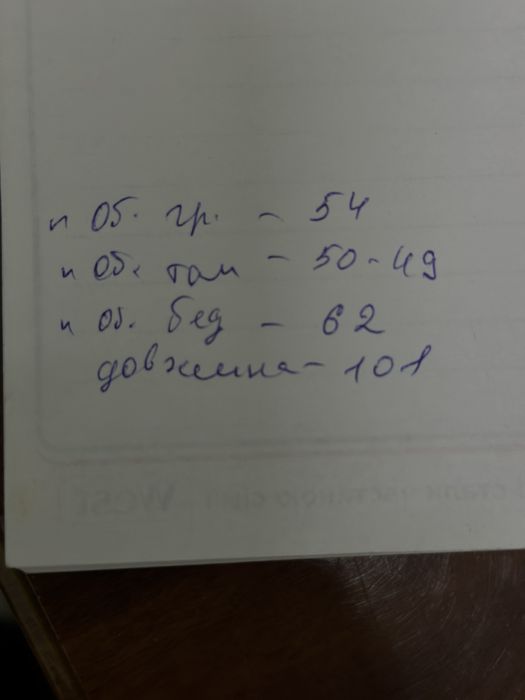 п Об. гр. - 54
п Об. тал - 50-49
п Об. бед - 62
довжина - 101